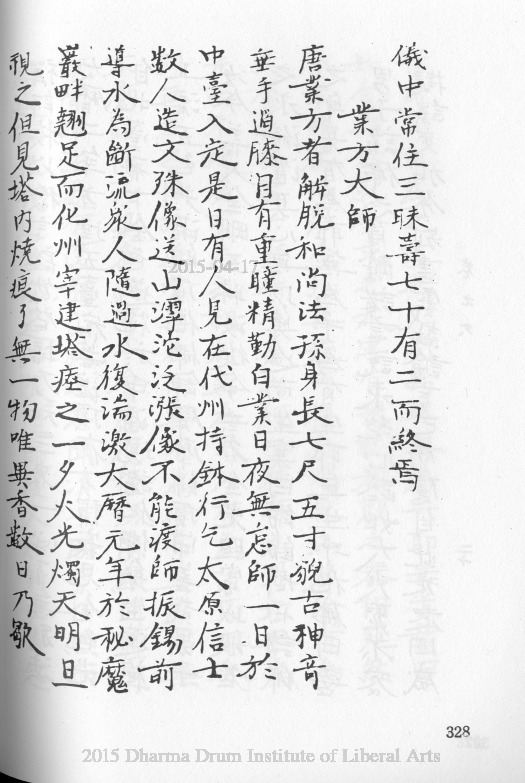 儀中常住三昧壽七十有二而終焉
業方大師
唐業方者解脫和尚法孫身長七尺五寸貌古神奇
垂手過膝目有重瞳精勤白業日夜無怠師一日於
中臺入定是日有人見在代州持鉢行乞太原信士
数人造文殊像送山滹沱泛漲像不能渡師振錫前
導水為斷流衆人隨過水復湍激大曆元年於秘魔
巖畔翹足而化州宰建塔瘞之一夕火光燭天明旦
視之但見塔內燒痕了無一物唯異香数日乃歇
328
2015-04-17
2015 Dharma Drum Institute of Liberal Arts